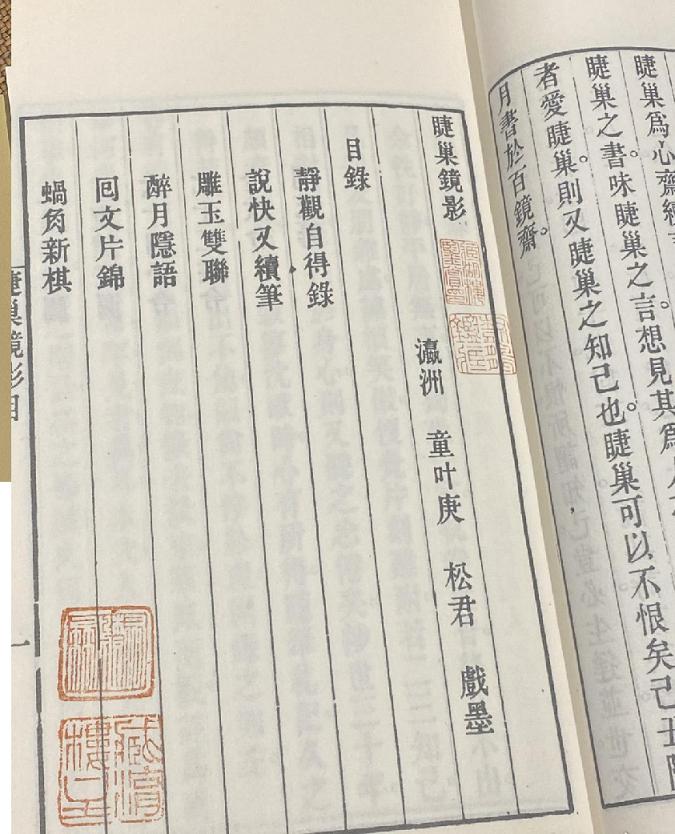 睫巢爲心齋續
睫巢之書。味睫巢之言。想見其爲人
者愛睫巢。則又睫巢之知己也。睫巢可以不恨矣己丑
月書於百鏡齋。
睫巢鏡影
瀛洲 童叶庚 松君 戲墨
目錄
靜觀自得錄
說快又續筆
雕玉雙聯
醉月隱語
回文片錦
蝸角新棋
睫巢鏡影目
一